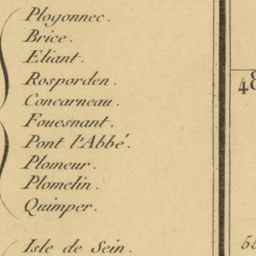 Plogonnec.
Brice.
Eliant.
Rosporden.
Concarneau.
Fouesnant.
Pont l'Abbé.
Plomeur.
Plomelin.
Quimper.
Isle de Sein.